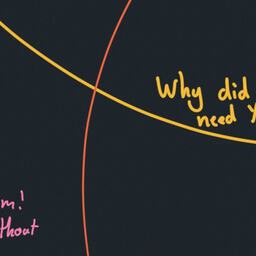 Why did
need
m!
thout